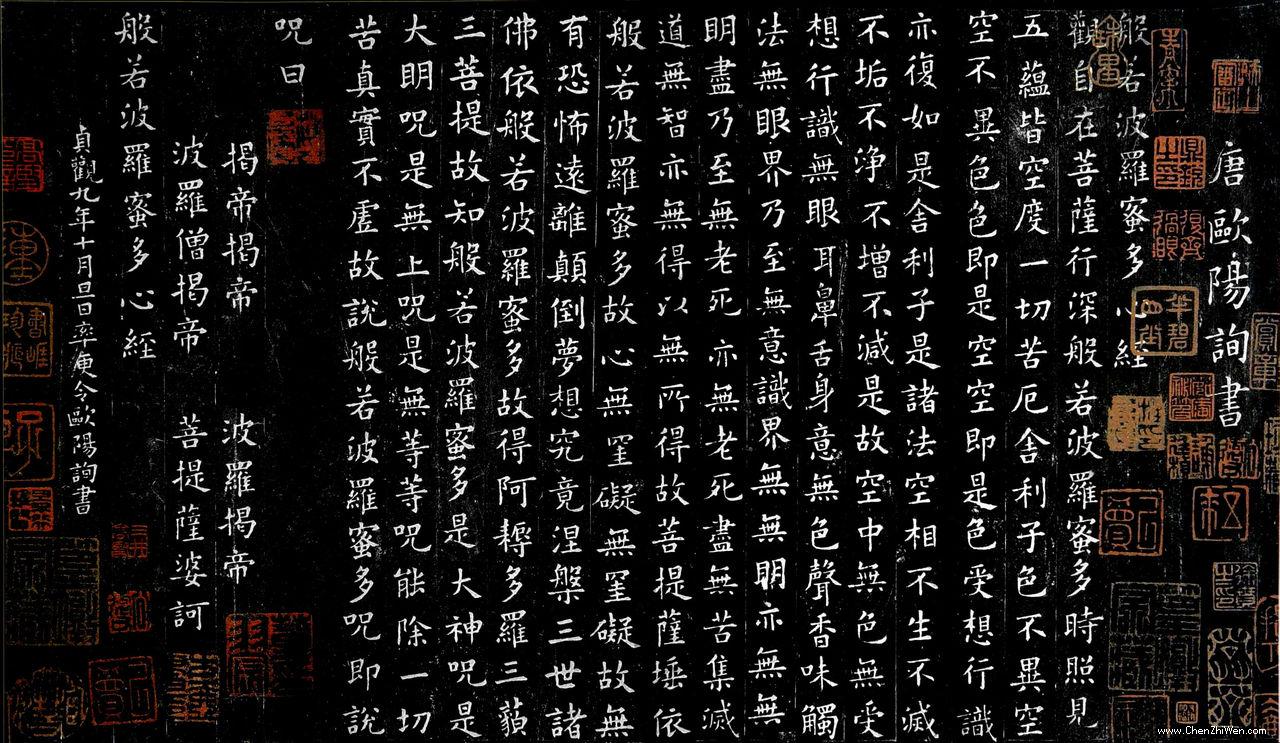 唐歐陽詢書
般若波羅蜜多心經
觀自在菩薩行深般若波羅蜜多時照見
五蘊皆空度一切苦厄舍利子色不異空
空不異色色即是空空即是色受想行識
亦復如是舍利子是諸法空相不生不滅
不垢不淨不增不減是故空中無色無受
想行識無眼耳鼻舌身意無色聲香味觸
法無眼界乃至無意識界無無明亦無無
明盡乃至無老死亦無老死盡無苦集滅
道無智亦無得以無所得故菩提薩埵依
般若波羅蜜多故心無罣礙無罣礙故無
有恐怖遠離顛倒夢想究竟涅槃三世諸
佛依般若波羅蜜多故得阿耨多羅三藐
三菩提故知般若波羅蜜多是大神咒是
大明咒是無上咒是無等等咒能除一切
苦真實不虛故說般若波羅蜜多咒即說
咒曰
揭帝揭帝 波羅揭帝
波羅僧揭帝 菩提薩婆訶
般若波羅蜜多心經
貞觀九年十月旦日率更令歐陽詢書
www.ChenZhiWen.com